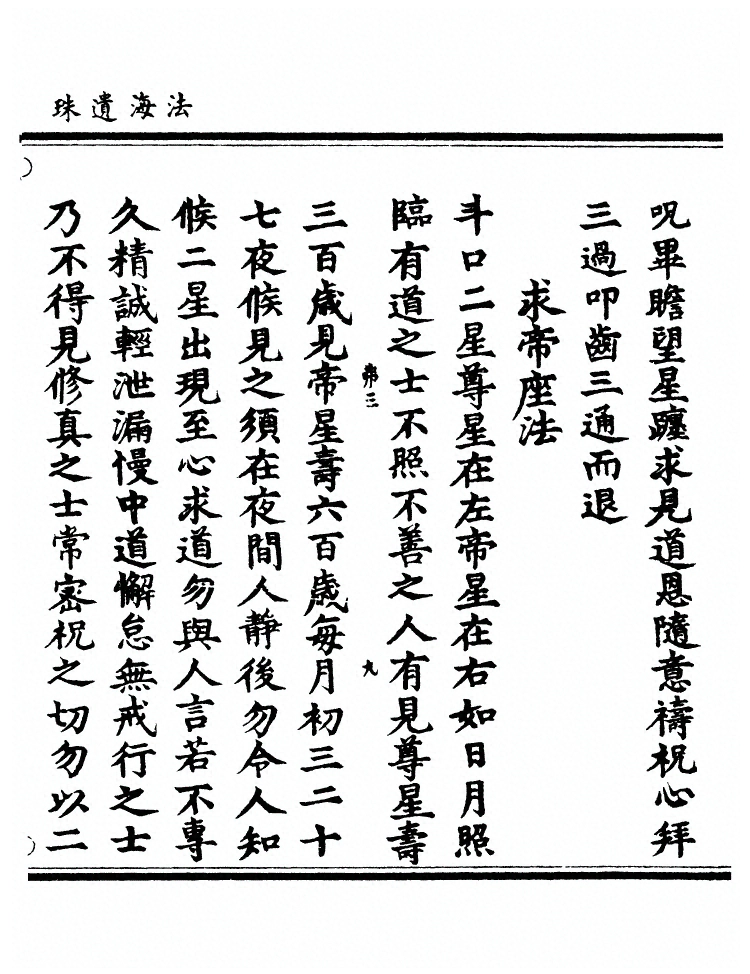 法海遺珠
呪畢瞻望星躔求見道恩隨意禱祝心拜
三過叩齒三通而退
求帝座法
斗口二星尊星在左帝星在右如日月照
臨有道之士不照不善之人有見尊星壽
弟三
九
三百歲見帝星壽六百歲每月初三二十
七夜候見之須在夜間人靜後勿令人知
候二星出現至心求道勿與人言若不專
久精誠輕泄漏慢中道懈怠無戒行之士
乃不得見修真之士常密祝之切勿以二